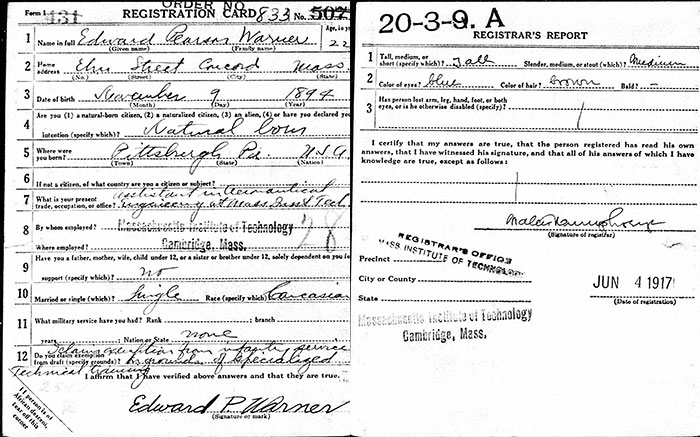 Form 1 431 ORDER NO.
REGISTRATION CARD 833 No. 502
1 Name in full Edward Pearson Warner Age, in y
(Given name) (Family name) 22
2 Home address Elm Street Concord Mass
(No.) (Street) (City) (State)
3 Date of birth November 9 1894
(Month) (Day) (Year)
4 Are you (1) a natural-born citizen, (2) a naturalized citizen, (3) an alien, (4) or have you declared you
intention (specify which)? Natural born
5 Where were you born? Pittsburgh Pa. U.S.A.
(Town) (State) (Nation)
6 If not a citizen, of what country are you a citizen or subject?
7 What is your present trade, occupation, or office? assistant in aeronautical
engineering at Mass Inst Tech
8 By whom employed? Massachusetts Institute of Technology
Where employed? Cambridge, Mass. 28
9 Have you a father, mother, wife, child under 12, or a sister or brother under 12, solely dependent on you fo
support (specify which)? no
10 Married or single (which)? Single Race (specify which)? Caucasian
11 What military service have you had? Rank ; branch
years ; Nation or State none
12 Do you claim exemption from draft (specify grounds)? Claims exemption from infantry service
on grounds of specialized
technical training
I affirm that I have verified above answers and that they are true.
Edward P Warner
(Signature or mark)
If person is of
African descent,
tear off this
corner
20-3-9. A
REGISTRAR'S REPORT
1 Tall, medium, or short (specify which)? Tall Slender, medium, or stout (which)? Medium
2 Color of eyes? blue Color of hair? brown Bald? —
3 Has person lost arm, leg, hand, foot, or both
eyes, or is he otherwise disabled (specify)?
I certify that my answers are true, that the person registered has read his own
answers, that I have witnessed his signature, and that all of his answers of which I have
knowledge are true, except as follows:
(Signature of registrar)
REGISTRAR'S OFFICE
Precinct MASS. INSTITUTE OF TECHNOLOGY
City or County JUN 4 1917
State (Date of registration)
Massachusetts Institute of Technology
Cambridge, Mass.